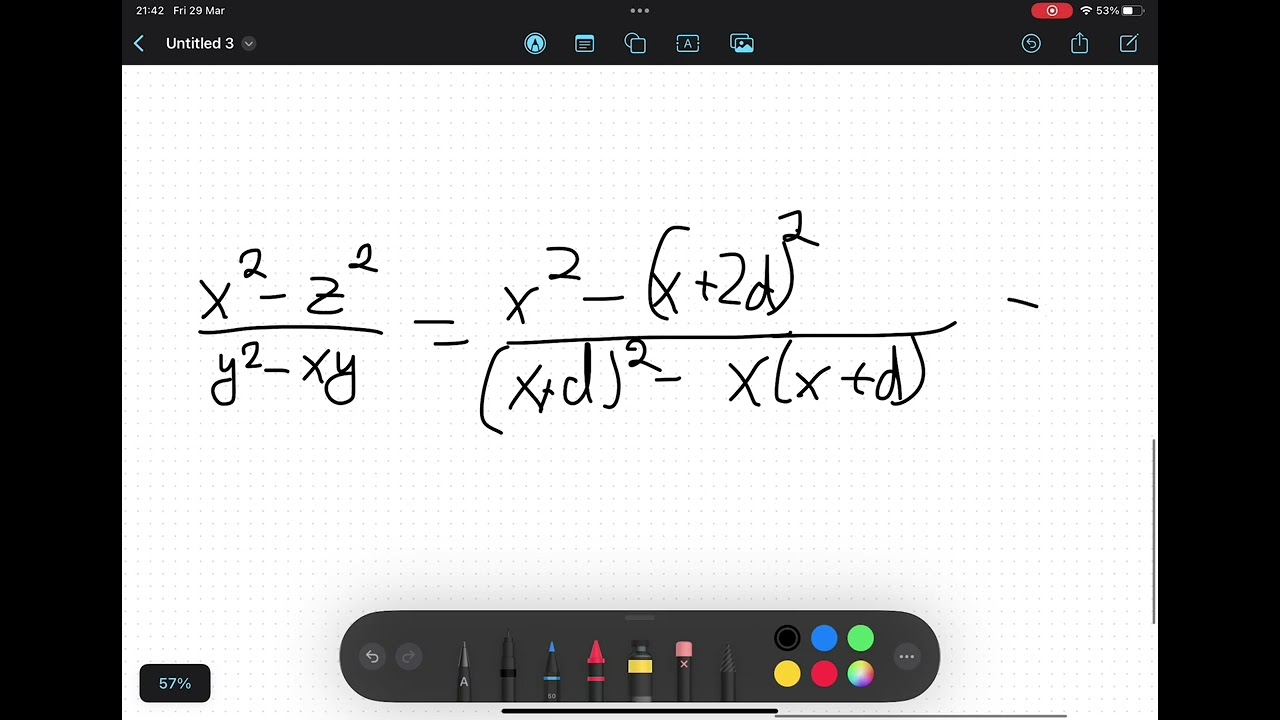 21:42 Fri 29 Mar 53%
Untitled 3
A
x² - z² / y² - xy = x² - (x+2d)² / (x+d)² - x(x+d) -
A
50
57%